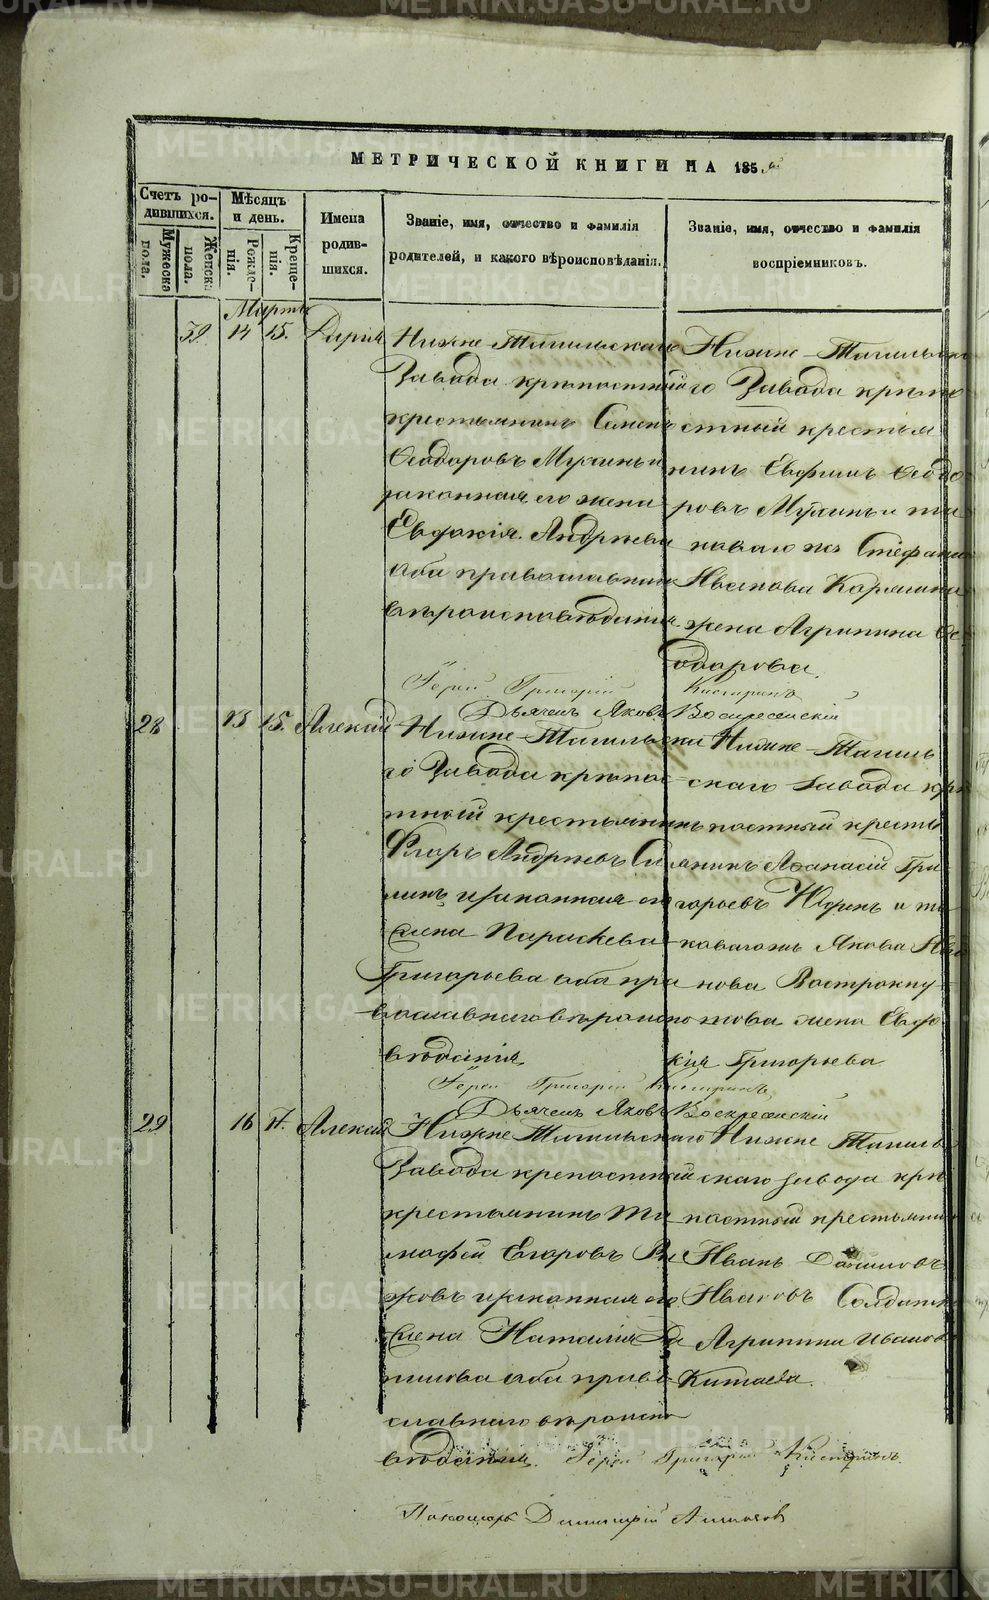 МЕТРИЧЕСКОЙ КНИГИ НА 185
Счетъ родившихся.
Мужеска пола.
Женска пола.
Мѣсяцъ и день.
Рожденія.
Крещенія.
Имена родившихся.
Званіе, имя, отчество и фамилія родителей, и какого вѣроисповѣданія.
Званіе, имя, отчество и фамилія воспріемниковъ.
Мартъ
14 15. Дарія
Нижне-Тагильскаго
Завода крѣпостный
крестьянинъ Семенъ
Ѳеодоровъ Мухинъ и
законная его жена
Евдокія Андреева
оба православнаго
вѣроисповѣданія
Нижне-Тагильска
го Завода крѣпо
стный крестья
нинъ Евфимъ Ѳеодо
ровъ Мухинъ и та
коваго жъ Стефана
Иванова Карягина
жена Агрипина Ѳе
одорова.
Іерей Григорій
Дьячекъ Яковъ Воскресенскій
28 13 15. Алексій
Нижне-Тагильска
го Завода крѣпос
тной крестьянинъ
Флоръ Андреевъ
и законная его
жена Параскева
Григорьева оба пра
вославнаго вѣроиспо
вѣданія
Нижне-Тагиль
скаго завода крѣ
постный кресть
янинъ Аѳанасій Гри
горьевъ Юдинъ и та
коваго жъ Якова Ива
нова Вострокну
това жена Евдо
кія Григорьева
Іерей Григорій
Дьячекъ Яковъ Воскресенскій
29 16 17. Алексій
Нижне Тагильскаго
Завода крепостный
крестьянинъ Ти
мофей Егоровъ
и законная его
жена Наталія Да
нилова оба право
славнаго вѣроиспо
вѣданія.
Нижне Тагиль
скаго завода крѣ
постный крестьянин
Иванъ Даниловъ
Ивановъ Солдатка
Агрипина Иванова
Китаева.
Іерей Григорій
Пономарь Димитрій